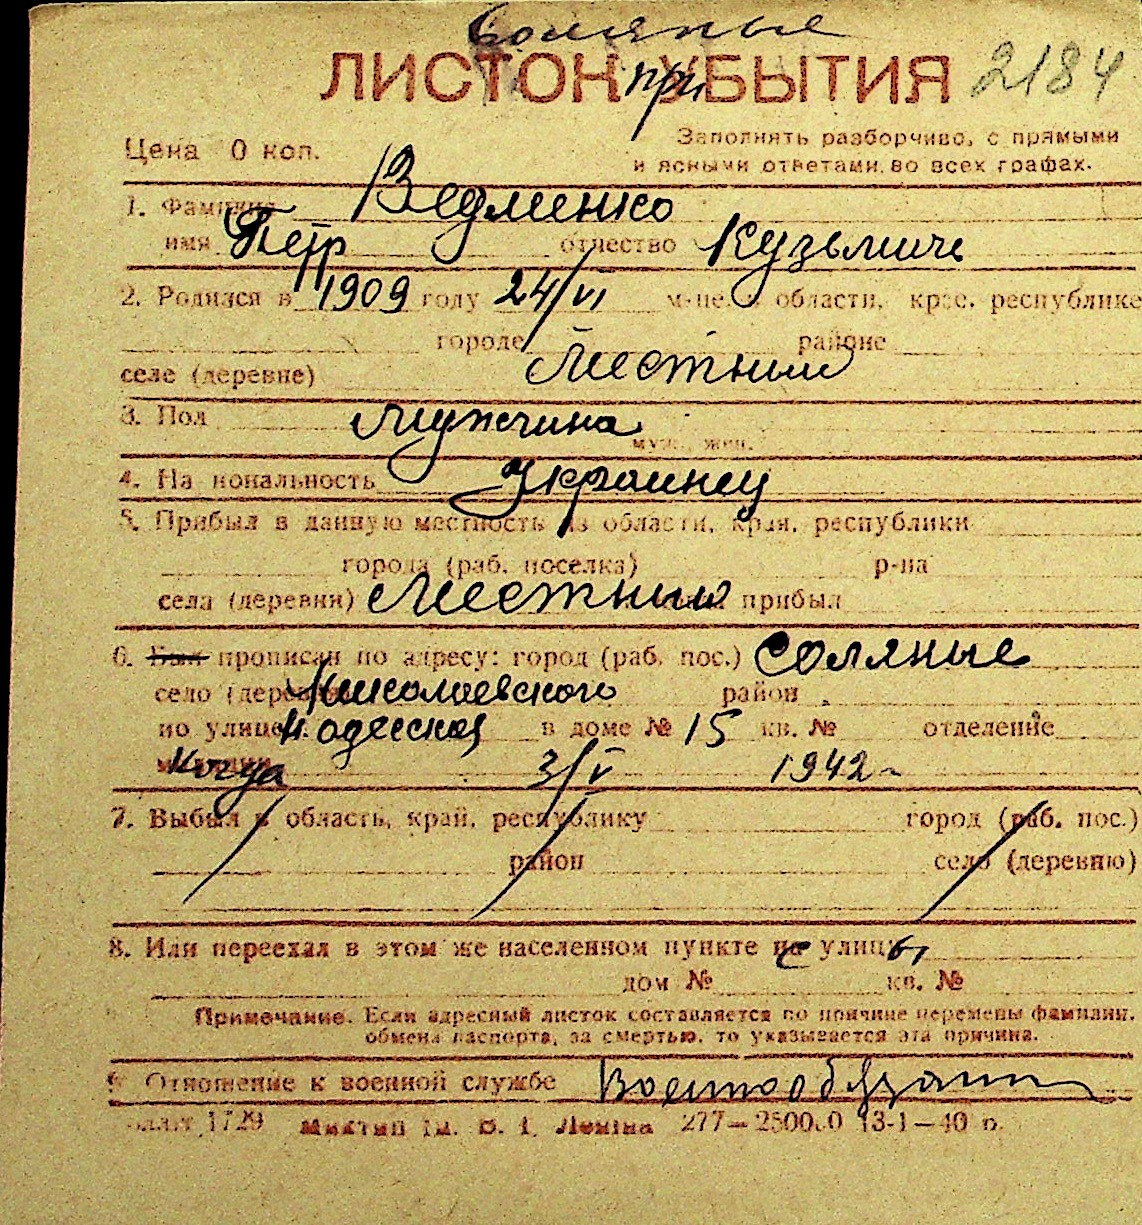 Соляные
ЛИСТОК при УБЫТИЯ 2184
Цена 0 коп. Заполнять разборчиво, с прямыми
и ясными ответами во всех графах.
1. Фамилия Ведменко
имя Петр отчество Кузьмич
2. Родился в 1909 году 24/VI м-це в области, крае, республике
городе районе
селе (деревне) Местный
3. Пол Мужчина
муж., жен.
4. Национальность Украинец
5. Прибыл в данную местность из области, края, республики
города (раб. поселка) р-на
села (деревни) Местный прибыл
6. Был прописан по адресу: город (раб. пос.) Соляные
село (деревня) Николаевского район
по улице Н. Одесская в доме № 15 кв. № отделение
милиции Когда 3/V 1942 г.
7. Выбыл в область, край, республику город (раб. пос.)
район село (деревню)
8. Или переехал в этом же населенном пункте с улицы
дом № кв. №
Примечание. Если адресный листок составляется по причине перемены фамилии,
обмена паспорта, за смертью, то указывается эта причина.
9. Отношение к военной службе Военнообязан
1729 им. В. І. Леніна 277—250000 13-1—40 р.